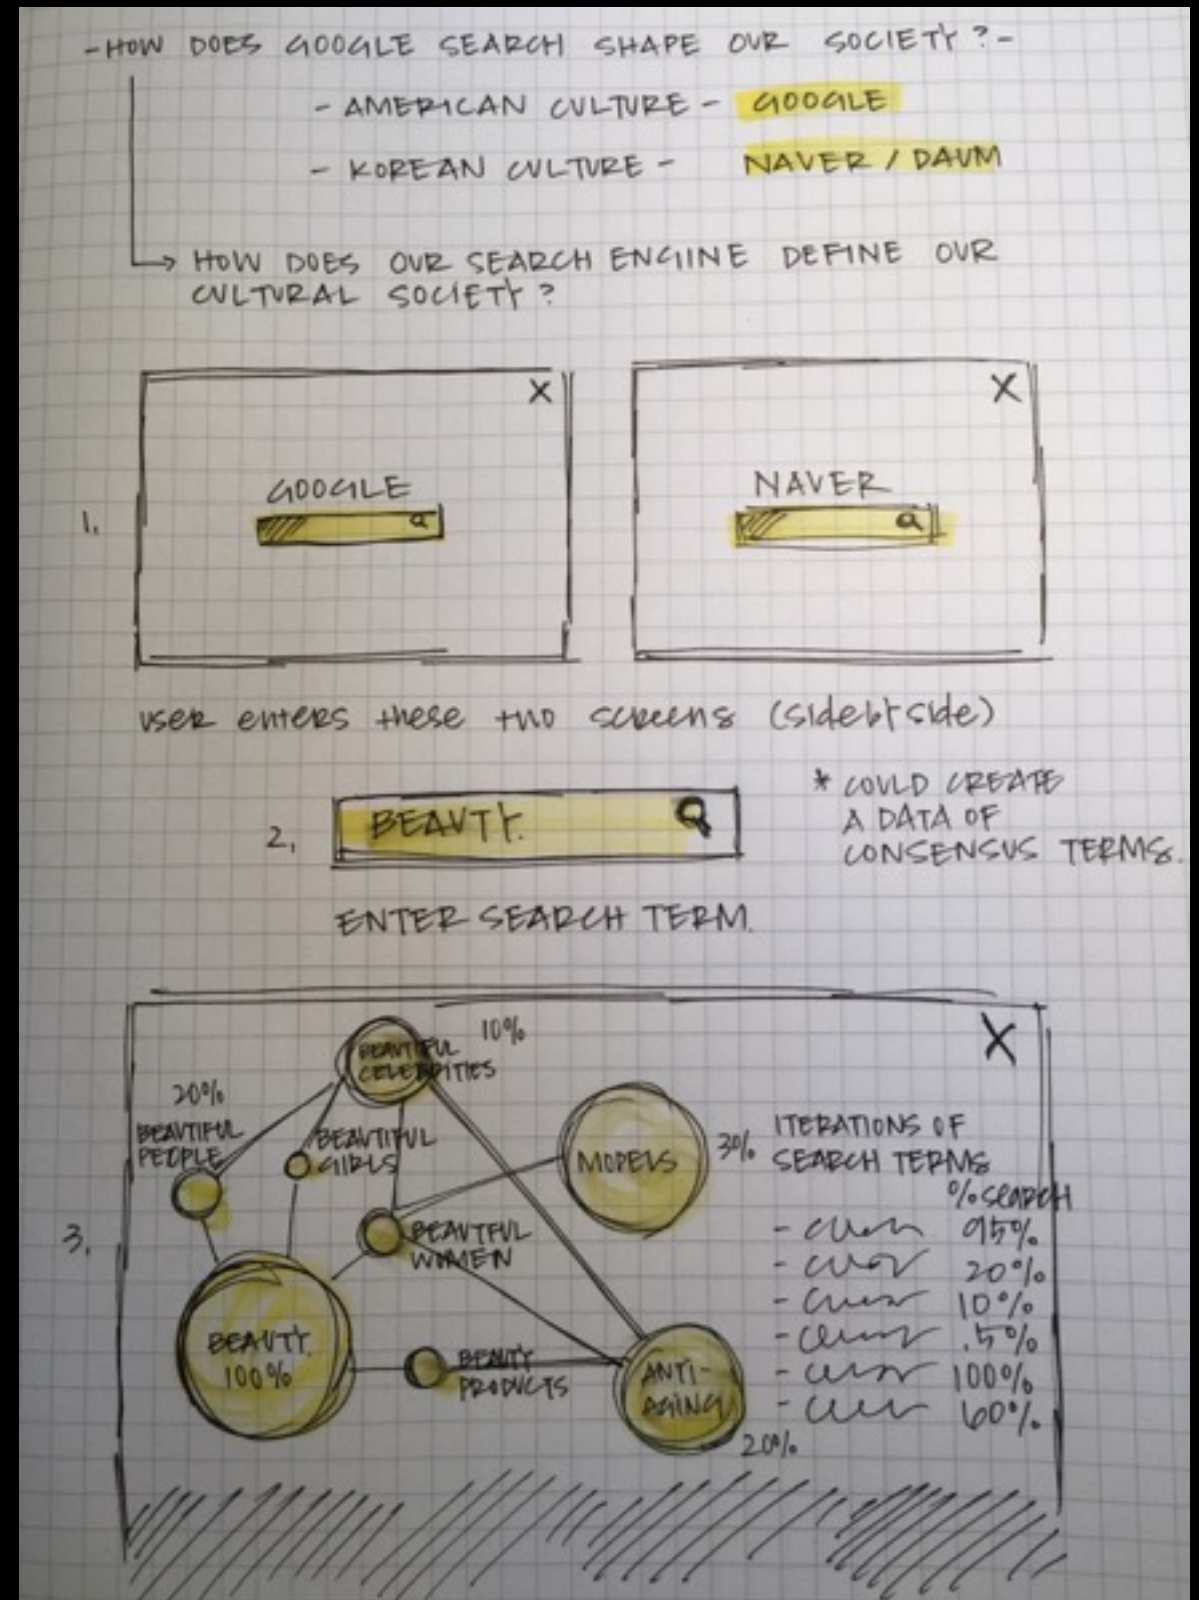 - HOW DOES GOOGLE SEARCH SHAPE OUR SOCIETY? -
- AMERICAN CULTURE - GOOGLE
- KOREAN CULTURE - NAVER / DAUM
→ HOW DOES OUR SEARCH ENGINE DEFINE OUR
CULTURAL SOCIETY?
X
X
GOOGLE
NAVER
1.
user enters these two screens (side by side)
2. BEAUTY.
* COULD CREATE
A DATA OF
CONSENSUS TERMS.
ENTER SEARCH TERM.
3.
X
10%
BEAUTIFUL
CELEBRITIES
20%
BEAUTIFUL
PEOPLE
BEAUTIFUL
GIRLS
MODELS
30%
BEAUTFUL
WOMEN
BEAUTY.
100%
BEAUTY
PRODUCTS
ANTI-
AGING
20%
ITERATIONS OF
SEARCH TERMS
% SEARCH
- 95%
- 20%
- 10%
- .5%
- 100%
- 60%